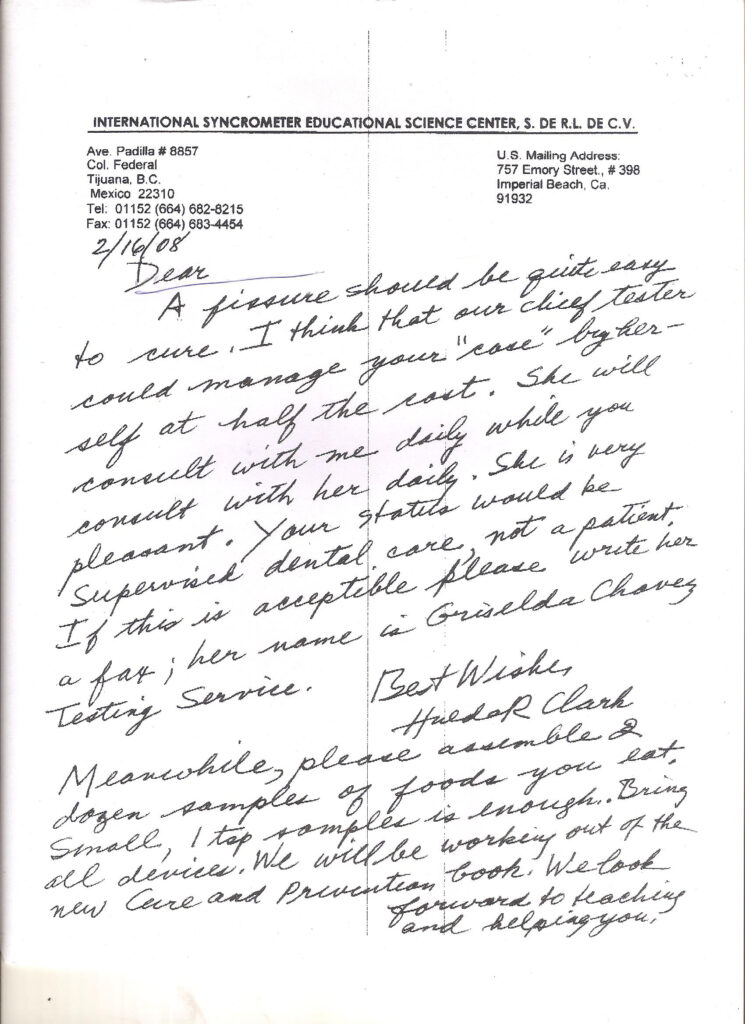 INTERNATIONAL SYNCROMETER EDUCATIONAL SCIENCE CENTER, S. DE R.L. DE C.V.
Ave. Padilla # 8857
Col. Federal
Tijuana, B.C.
Mexico 22310
Tel: 01152 (664) 682-8215
Fax: 01152 (664) 683-4454
U.S. Mailing Address:
757 Emory Street., # 398
Imperial Beach, Ca.
91932
2/16/08
Dear
A fissure should be quite easy
to cure. I think that our chief tester
could manage your "case" by her-
self at half the cost. She will
consult with me daily while you
consult with her daily. She is very
pleasant. Your status would be
Supervised dental care, not a patient.
If this is acceptible please write her
a fax; her name is Griselda Chavez
Testing Service.
Best Wishes
Hulda R Clark
Meanwhile, please assemble 2
dozen samples of foods you eat.
Small, 1 tsp samples is enough. Bring
all devices. We will be working out of the
new Cure and Prevention book. We look
forward to teaching
and helping you.